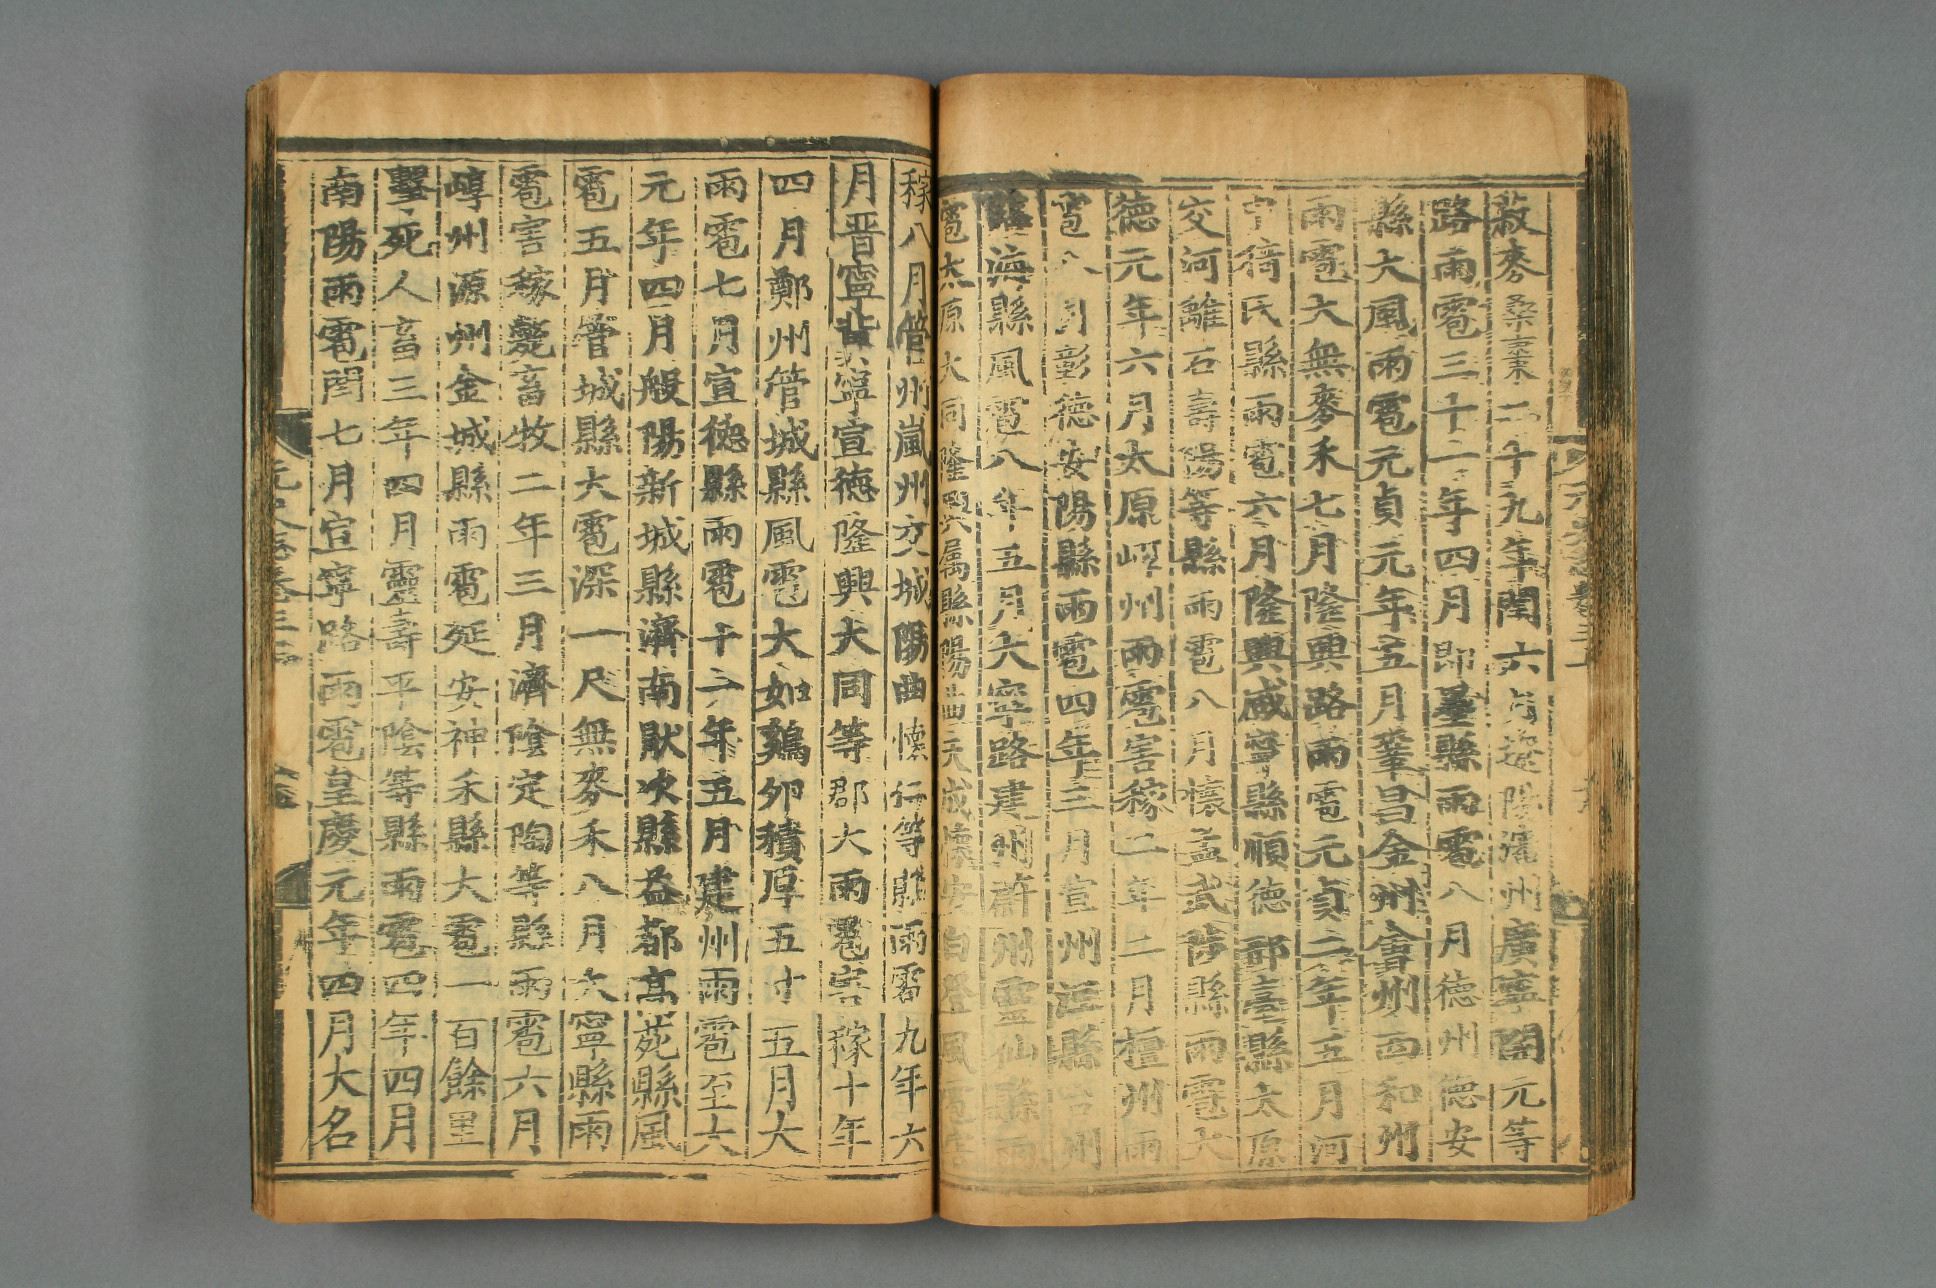 菽麥桑棗二十九年閏六月遼陽瀋州廣寧開元等
路雨雹三十一年四月即墨縣雨雹八月德州德安
縣大風雨雹元貞元年五月鞏昌金州會州西和州
雨雹大無麥禾七月隆興路雨雹元貞二年五月河
猗氏縣雨雹六月隆興咸寧縣順德邢臺縣太原
交河離石壽陽等縣雨雹八月懷孟武陟縣雨雹大
德元年六月太原崞州雨雹害稼二年二月檀州雨
雹八月彰德安陽縣雨雹四年三月宣州涇縣台州
臨海縣風雹八年五月大寧路建州蔚州靈仙縣雨
雹太原大同隆興屬縣陽曲天成懷安白登風雹害
稼八月管州嵐州交城陽曲懷仁等縣雨雹九年六
月晉寧冀寧宣德隆興大同等郡大雨雹害稼十年
四月鄭州管城縣風雹大如雞卵積厚五寸五月大
雨雹七月宣德縣雨雹十一年五月建州雨雹至大
元年四月般陽新城縣濟南厭次縣益都高苑縣風
雹五月管城縣大雹深一尺無麥禾八月大寧縣雨
雹害稼斃畜牧二年三月濟陰定陶等縣雨雹六月
崞州源州金城縣雨雹延安神禾縣大雹一百餘里
擊死人畜三年四月靈壽平陰等縣雨雹四年四月
南陽雨雹閏七月宣寧路雨雹皇慶元年四月大名